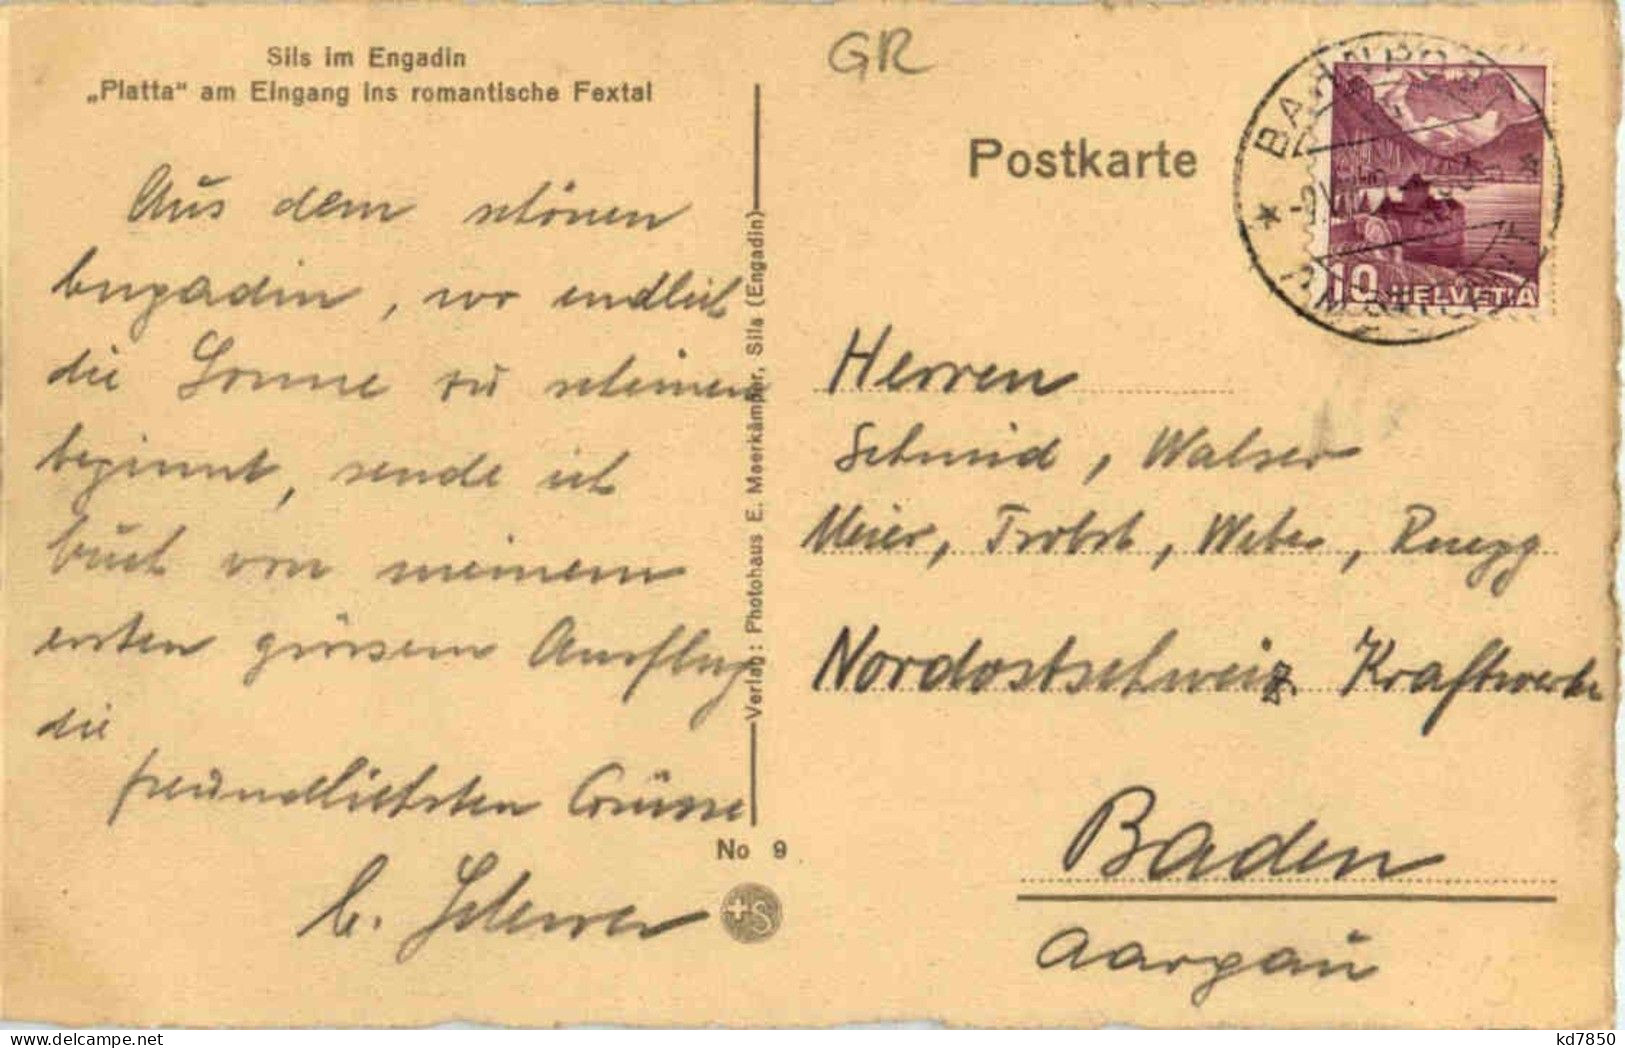 Sils im Engadin
„Platta“ am Eingang ins romantische Fextal
Aus dem schönen
Engadin, wo endlich
die Sonne zu scheinen
beginnt, sende ich
Euch von meinem
ersten grössern Ausflug
die
freundlichsten Grüsse
Verlag: Photohaus E. Maerkämper, Sils (Engadin)
No 9
+S
GR
Postkarte
10 HELVETIA
Herren
Schmid, Walser
Meier, Trobst, Weber, Ruegg
Nordostschweiz. Kraftwerke
Baden
Aargau
© kd7850